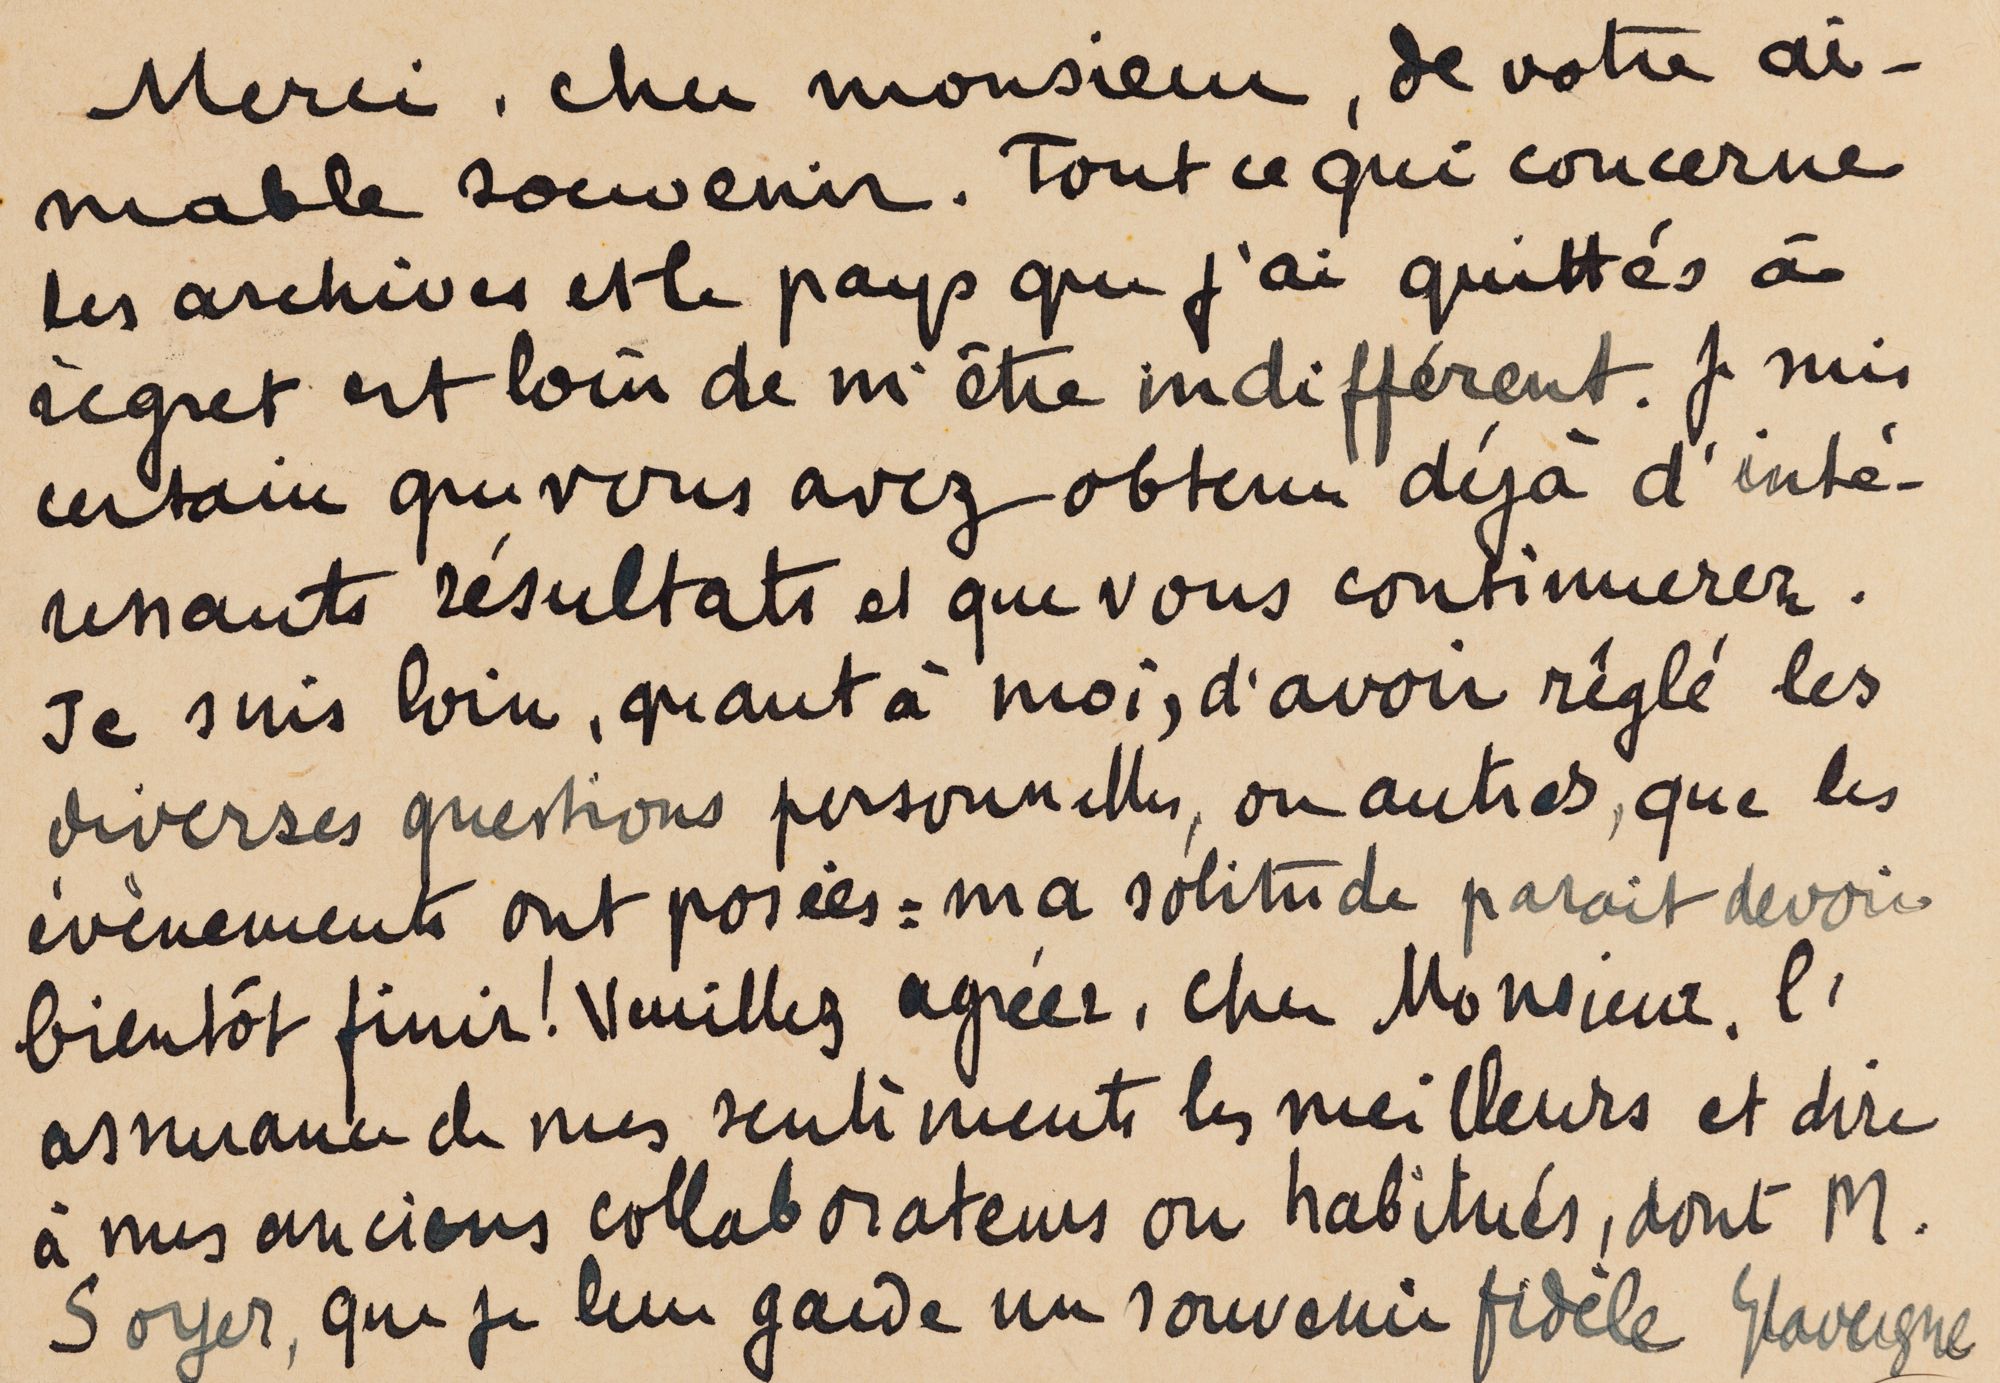 Merci, cher monsieur, de votre ai-
mable souvenir. Tout ce qui concerne
les archives et le pays que j'ai quittés à
regret est loin de m'être indifférent. Je suis
certain que vous avez obtenu déjà d'inté-
ressants résultats et que vous continuerez.
Je suis loin, quant à moi, d'avoir réglé les
diverses questions personnelles, ou autres, que les
évènements ont posées : ma solitude parait devoir
bientôt finir! Veuillez agréer, cher Monsieur, l'
assurance de mes sentiments les meilleurs et dire
à mes anciens collaborateurs ou habitués, dont M.
Soyer, que je leur garde un souvenir fidèle